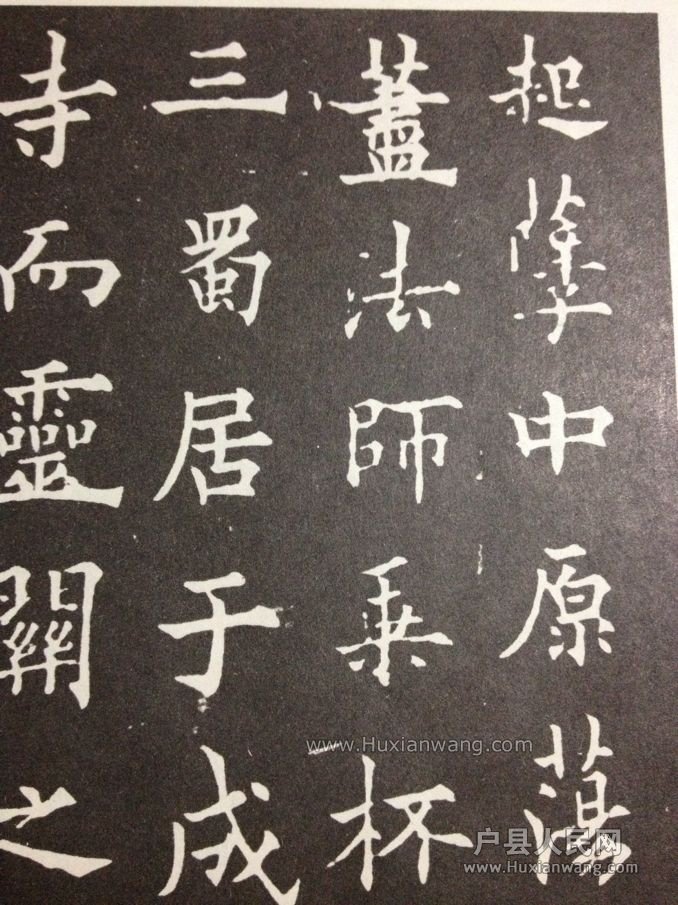 起孽中原蕩
盡法師乗杯
三蜀居于成
寺而靈關之
www.Huxianwang.com
户县人民网
www.Huxianwang.com